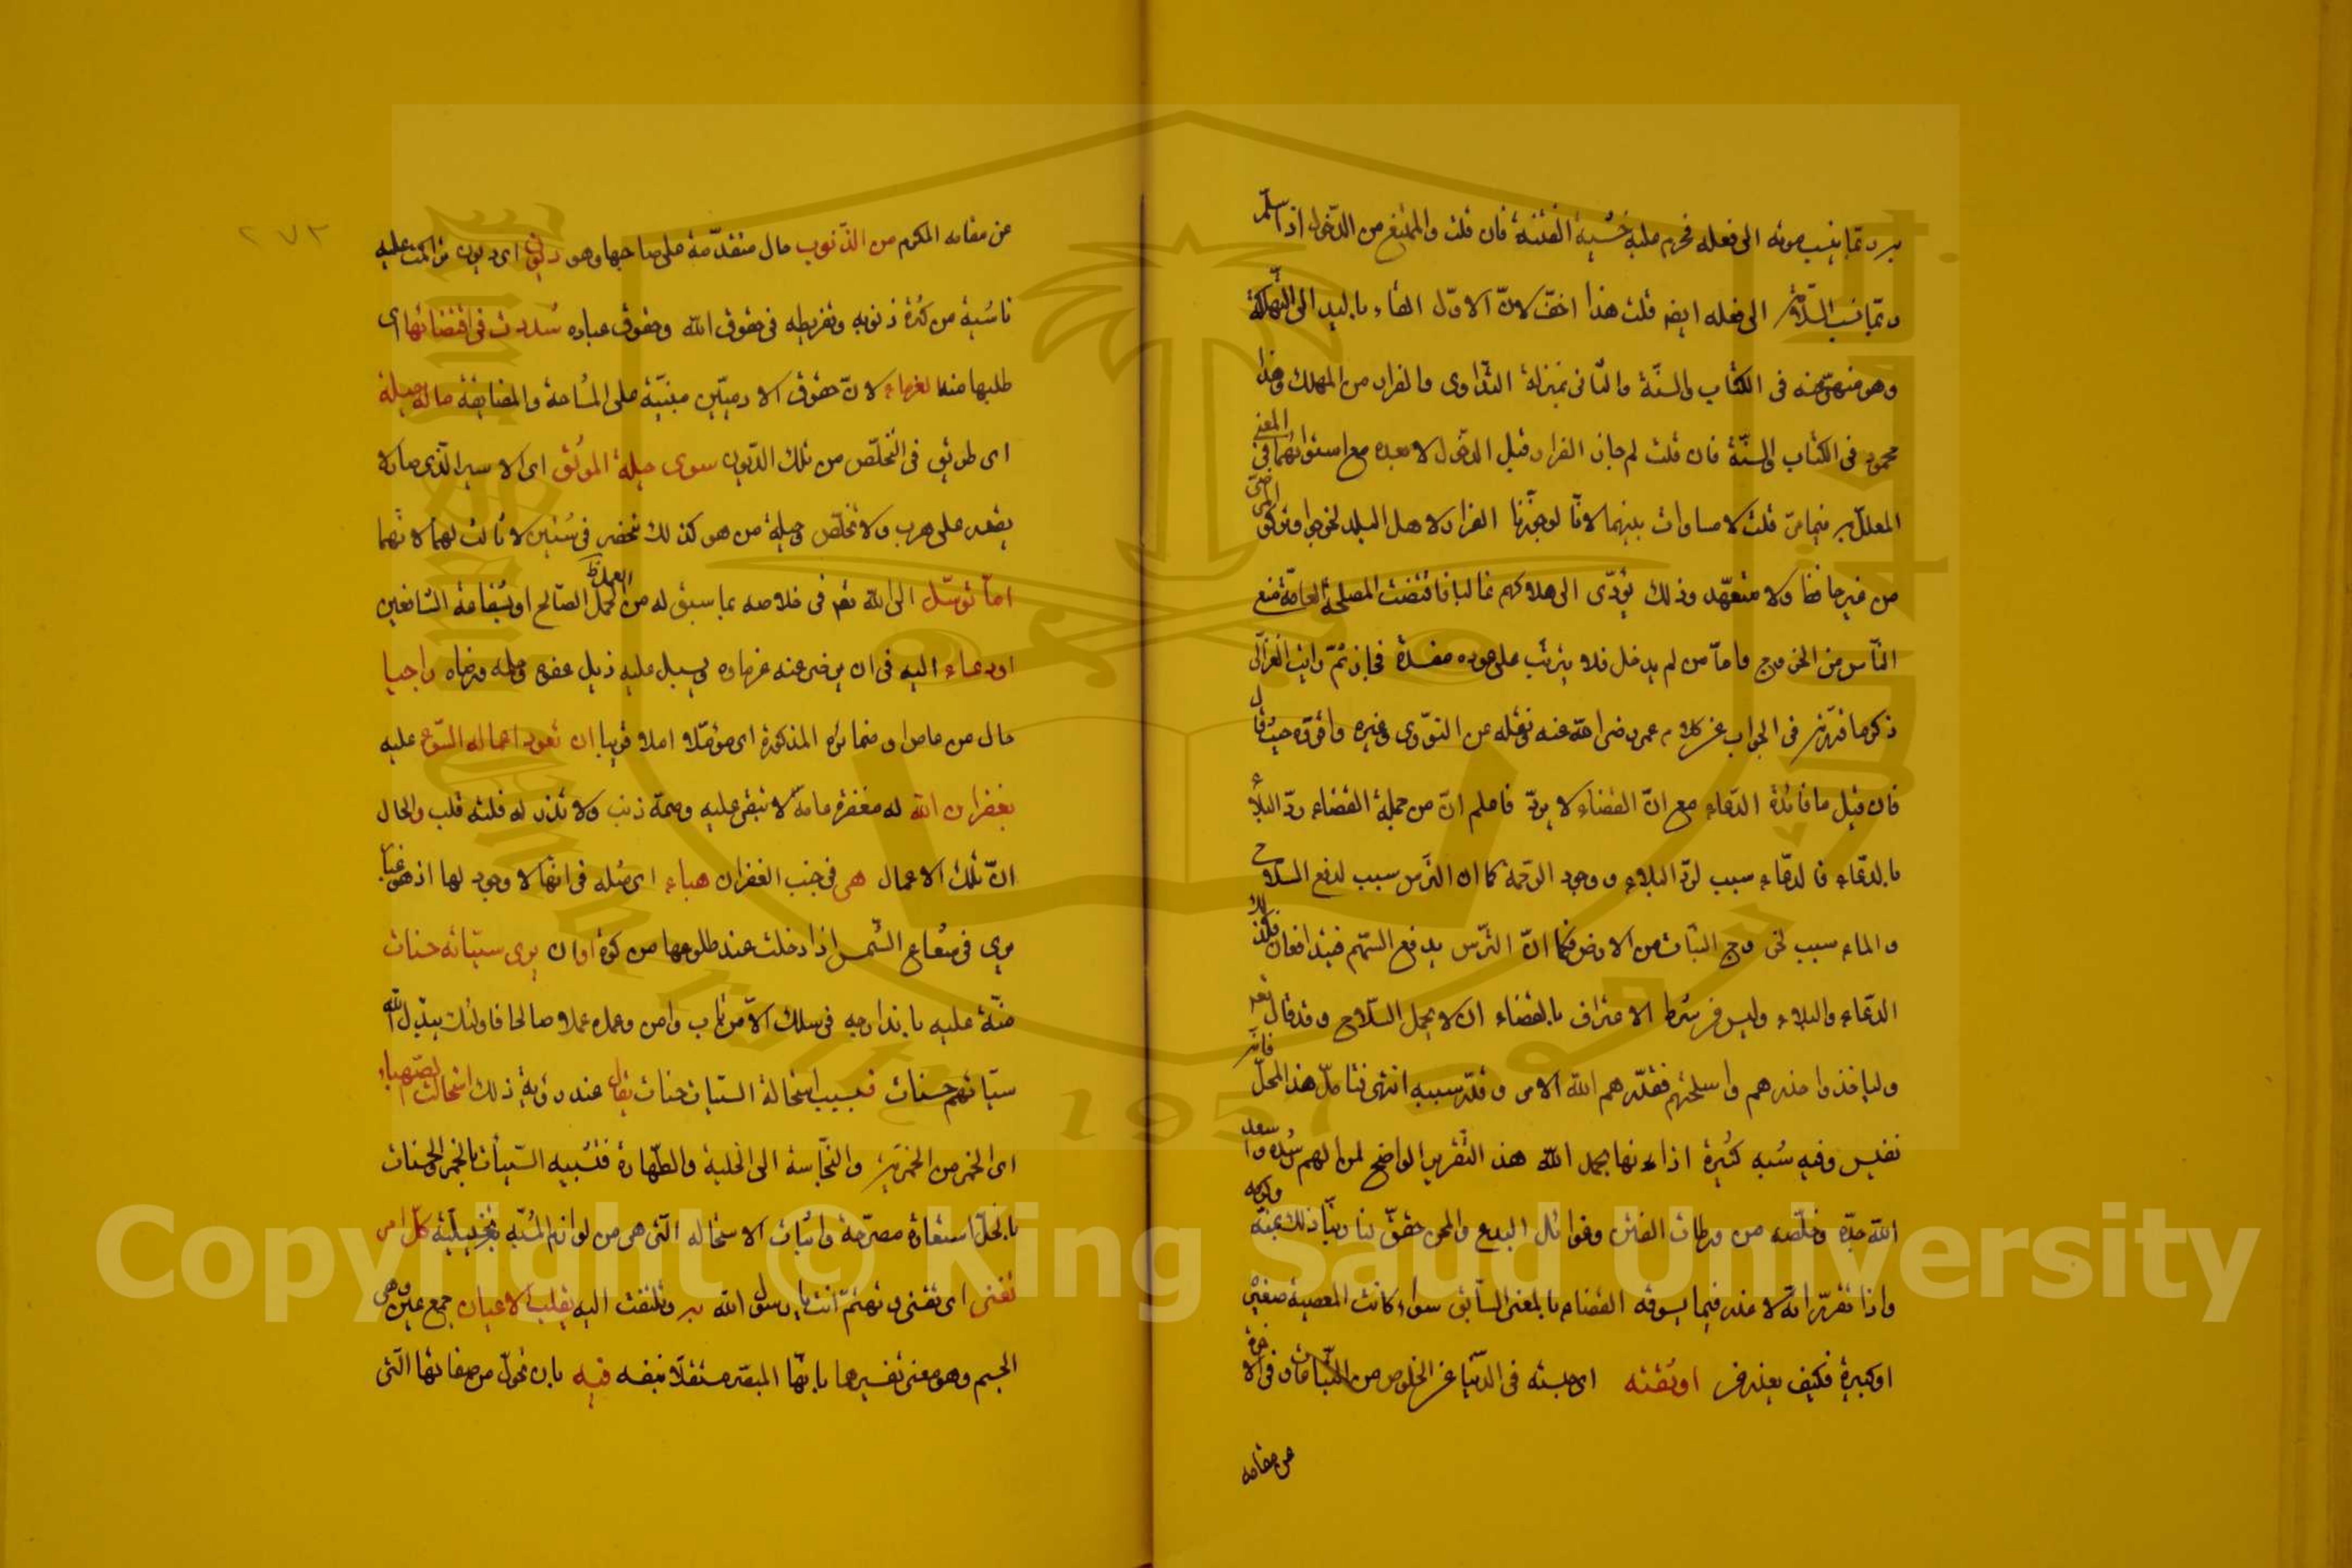 به ربّما ينسب موته الى فعله فحرم عليه خشية الفتنة فان قلت والممتنع من الدّخول اذا سلم
ربّما نسب السّلامة الى فعله ايضا قلت هذا اخفّ لانّ الاوّل القاء باليد الى التهلكة
وهو منهىّ عنه فى الكتاب والسنّة والثانى بمنزلة التداوى والفرار من المهلك وهذا
محمود فى الكتاب والسنّة فان قلت لم جاز الفرار قبل الدخول لا بعده مع استوائهما فى المعنى
المعلل به فيما مرّ قلت لا مساوات بينهما لانّا لو جوّزنا الفرار لاهل البلد لخرجوا وتركوا المرضى
من غير حافظ ولا متعهّد وذلك يؤدّى الى هلاكهم غالبا فاقتضت المصلحة العامّة منع
النّاس من الخروج وامّا من لم يدخل فلا يترتب على عوده مفسدة فجاز ثمّ رايت الغزّالى
ذكر ما قرّرته فى الجواب عن كلام عمر رضى الله عنه ونقله عن النّووى وغيره واقرّوه حيث قال
فان قيل ما فائدة الدّعاء مع انّ القضاء لا يردّ فاعلم انّ من جملة القضاء ردّ البلاء
بالدّعاء فالدّعاء سبب لردّ البلاء ووجود الرّحمة كما ان التّرس سبب لدفع السّلاح
والماء سبب لخروج النّبات من الارض فكما انّ التّرس يدفع السّهم فيتدافعان فكذلك
الدّعاء والبلاء وليس من شرط الاعتراف بالقضاء ان لا يحمل السّلاح وقد قال تعالى
وليأخذوا حذرهم واسلحتهم فقدّرهم الله الامر وقدّر سببه انتهى فتأمّل هذا المحلّ فانّه
نفيس وفيه شبه كثيرة ازاحها بحمد الله هذا التّقرير الواضح لمن الهم رشده واسعد
الله جدّه وخلّصه من ورطات الفتن وغوائل البدع والمحن حقق لنا ربّنا ذلك بمنّه وكرمه
واذا تقرّر انّه لا عذر فيما يسوقه القضاء بالمعنى السّابق سواء كانت المعصية صغيرة
او كبيرة فكيف يعذر من اوثقته اى حبسته فى الدّنيا عن الخلوص من التّبعات وفى الاخرة
عن مقامه
٢٧٣
عن مقامه المكرم من الذّنوب حال متقدّمة على صاحبها وهو ديون اى ديون تراكمت عليه
ناشية من كثرة ذنوبه وتفريطه فى حقوق الله وحقوق عباده شدّدت فى اقتضائها اى
طلبها منه الغرماء لانّ حقوق الادميّين مبنيّة على المشاحة والمضايقة ما له حيلة
اى طريق فى التخلّص من تلك الدّيون سوى حيلة الموثق اى الاسير الّذى صار لا
يقدر على هرب ولا تخلّص وحيلة من هو كذلك تنحصر فى شيئين لا ثالث لهما لانّهما
امّا توسّل الى الله تعالى فى خلاصه بما سبق له من العمل الصّالح او بشفاعة الشافعين
او دعاء اليه فى ان يرضى عنه غرماءه ويسبل عليه ذيل عفوه وحلمه ورضاه راجيا
حال من عاص او ضمائره المذكورة اى مؤمّلا املا قويا ان تعود اعماله السّوء عليه
بغفران الله له مغفرة عامة لا تبقى عليه وصمة ذنب ولا تذر له فلتة قلب والحال
انّ تلك الاعمال هى فى جنب الغفران هباء اى مثله فى انها لا وجود لها اذ هو غبار
يرى فى شعاع الشّمس اذا دخلت عند طلوعها من كوة او ان يرى سيّئاته حسنات
منّة عليه باندارجه فى سلك الّا من تاب وامن وعمل عملا صالحا فاولئك يبدّل الله
سيّاتهم حسنات فبسبب استحالة السيّات حسنات يقال عند رؤية ذلك استحالت الصّهباء
اى الخمر من الخمريّة والنّجاسة الى الخلّية والطّهارة فتشبيه السّيئات بالخمر والحسنات
بالخلّ استعارة مصرّحة واثبات الاستحالة الّتى هى من لوازم المشبّه به تخييليّة كلّ امر
تعنى اى تعتنى وتهتمّ انت يا رسول الله به وتلتفت اليه بقلب الاعيان جمع عين وهى
الجسم وهو معنى تفسيرها بانّها المتميّز مستقلّا بنفسه فيه بان تحوّل من صفاتها الّتى
Copyright © King Saud University
1957